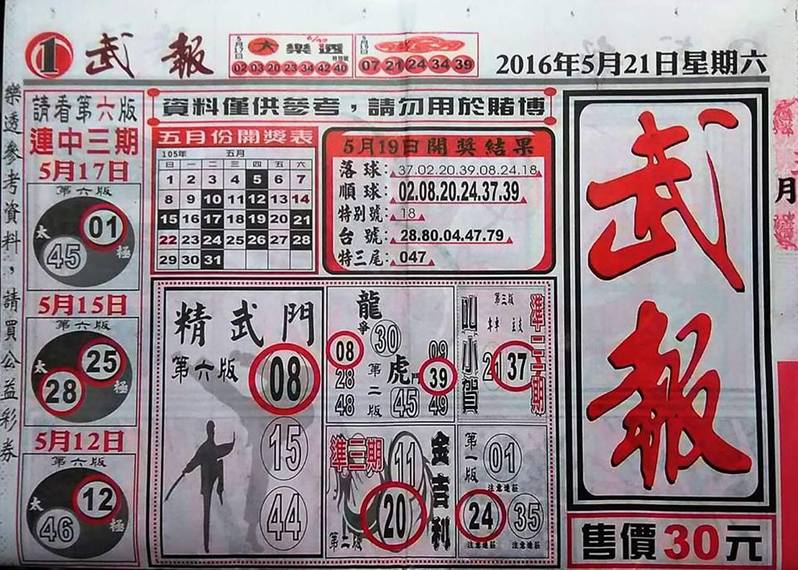 1 武報
5月17日 大樂透 6/49
02 03 20 23 34 42 40
07 21 24 34 39
2016年5月21日星期六
樂透參考資料，請買公益彩券
請看第六版
連中三期
5月17日
第六版
太 01
45 極
5月15日
第六版
太 25
28 極
5月12日
第六版
太 12
46 極
資料僅供參考，請勿用於賭博
五月份開獎表
105年 五月
日 一 二 三 四 五 六
1 2 3 4 5 6 7
8 9 10 11 12 13 14
15 16 17 18 19 20 21
22 23 24 25 26 27 28
29 30 31
5月19日開獎結果
落球：37.02.20.39.08.24.18
順球：02.08.20.24.37.39
特別號：18
台號：28.80.04.47.79
特三尾：047
精武門
第六版 08
15
44
龍爭虎鬥
第二版
30
08
28
48
09
39
45 49
叫小賀
第三版
準二三期
21 37
準三期
金吉利
第二版
11
20
第一版
01
注意連莊
24 35
注意連莊 注意連莊
武報
售價30元
月